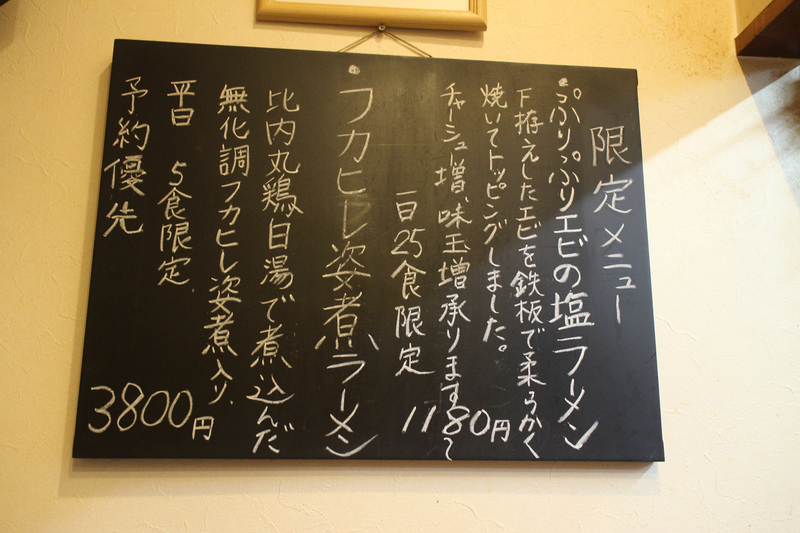 限定メニュー
ぷりっぷりエビの塩ラーメン
下拵えしたエビを鉄板で柔らかく
焼いてトッピングしました。
チャーシュー増、味玉増承ります〜
一日25食限定
1180円
フカヒレ姿煮ラーメン
比内丸鶏白湯で煮込んだ
無化調フカヒレ姿煮入り.
平日 5食限定.
予約優先
3800円